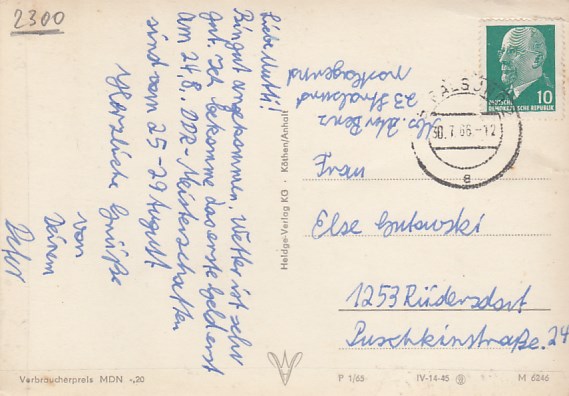 2300
Liebe Mutti!
Bin gut angekommen, Wetter ist sehr
gut. Ich bekomme das erste Geld erst
am 24.8. DDR-Meisterschaften
sind vom 25-29 August
Herzliche Grüße
von
Deinem
Peter
23 Stralsund
postlagernd
Heldge-Verlag KG · Köthen/Anhalt
DEUTSCHE
DEMOKRATISCHE REPUBLIK
10
STRALSUND
30.7.66-12
a
Frau
Else Gutowski
1253 Rüdersdorf
Puschkinstraße 24
Verbraucherpreis MDN -,20
P 1/65 IV-14-45 M 6246